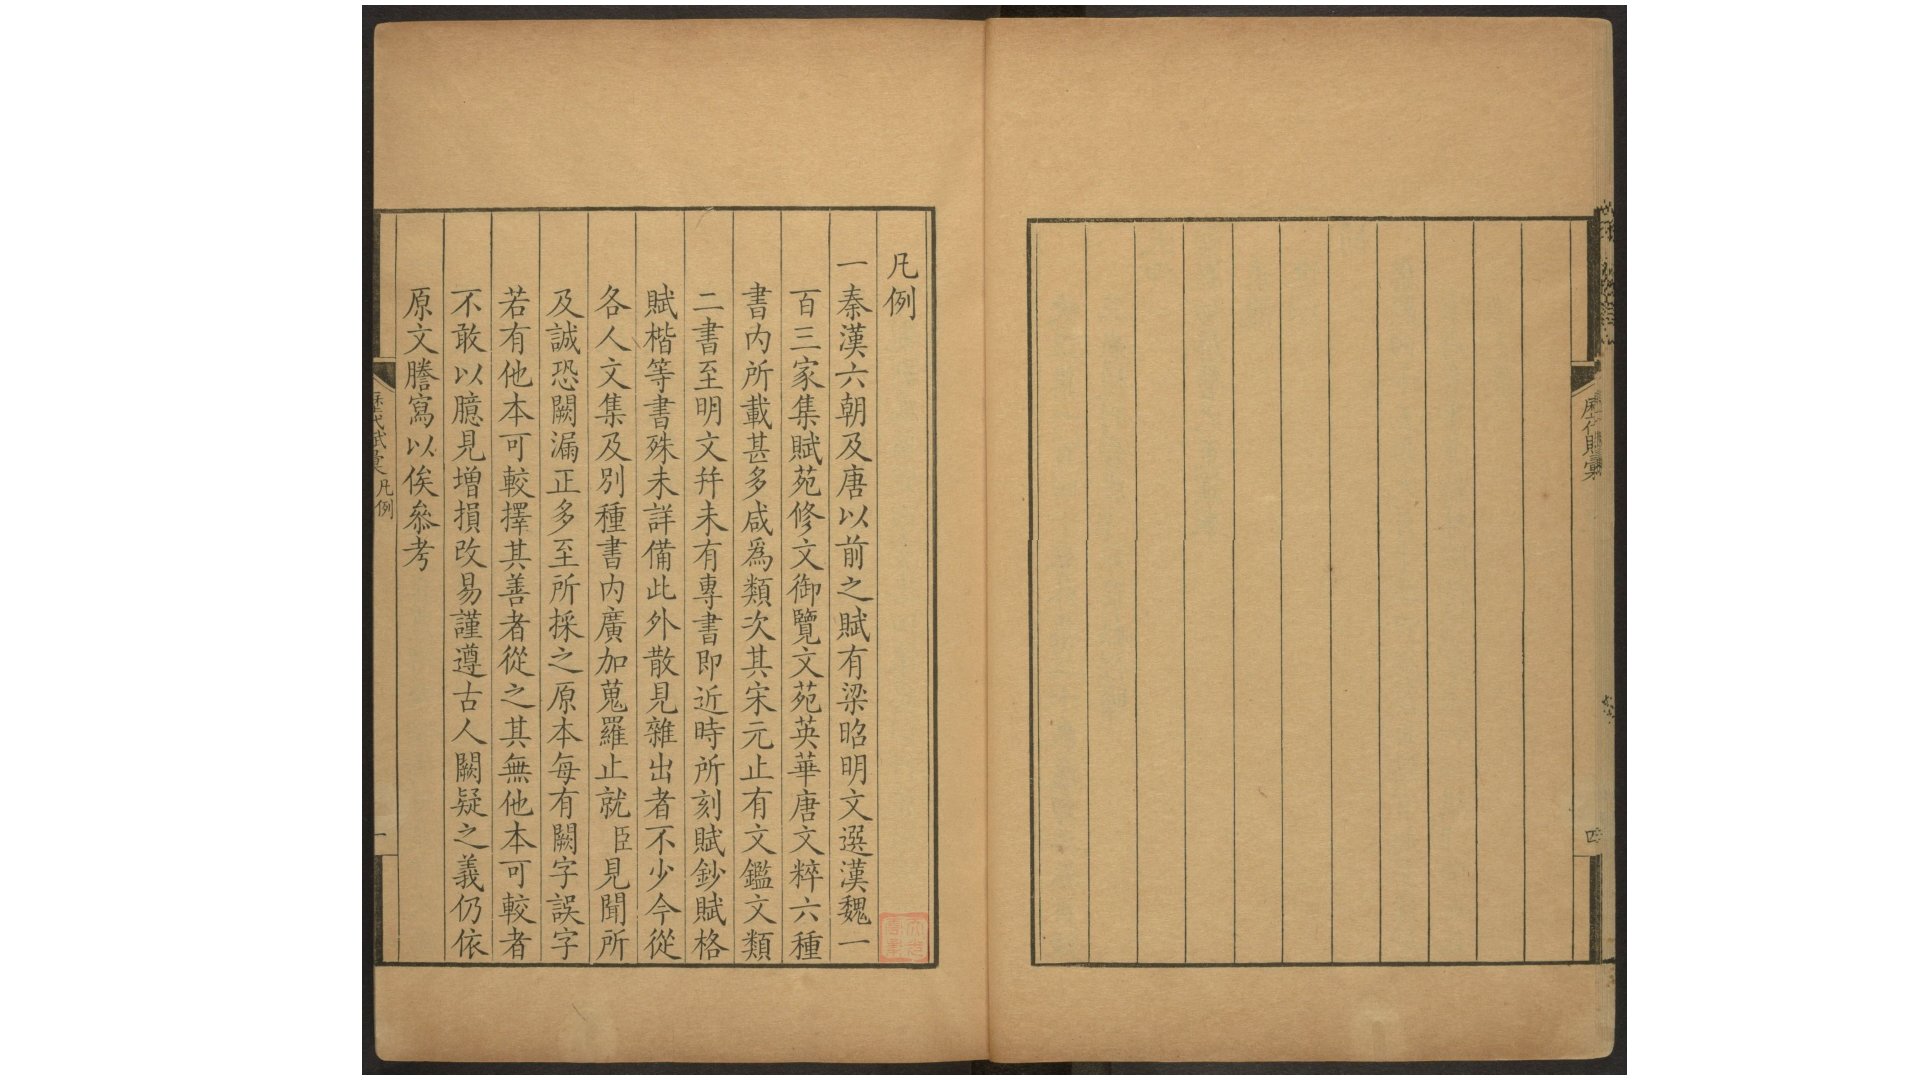 歷代賦彙
四
凡例
一秦漢六朝及唐以前之賦有梁昭明文選漢魏一
百三家集賦苑修文御覽文苑英華唐文粹六種
書內所載甚多咸爲類次其宋元止有文鑑文類
二書至明文幷未有專書即近時所刻賦鈔賦格
賦楷等書殊未詳備此外散見雜出者不少今從
各人文集及別種書內廣加蒐羅止就臣見聞所
及誠恐闕漏正多至所採之原本每有闕字誤字
若有他本可較擇其善者從之其無他本可較者
不敢以臆見增損改易謹遵古人闕疑之義仍依
原文謄寫以俟參考
歷代賦彙凡例
一